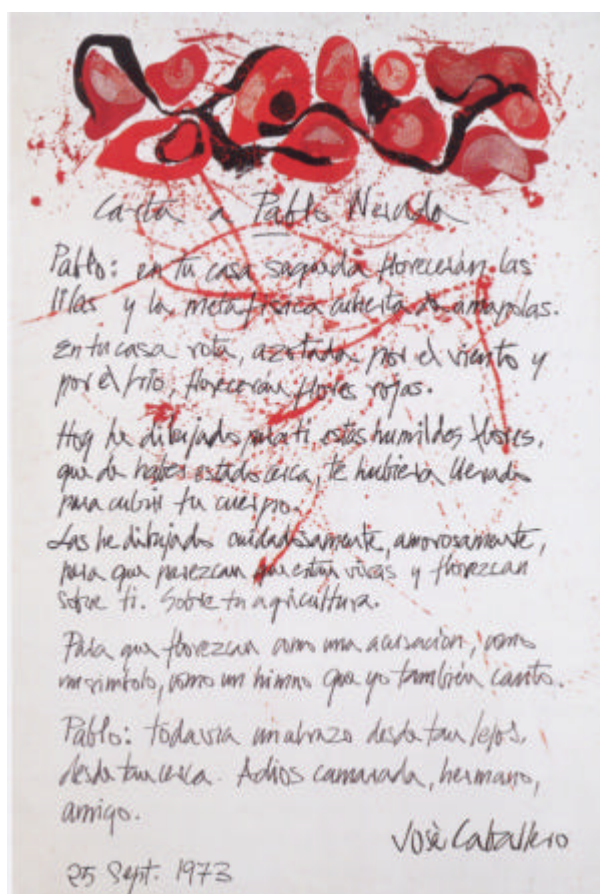 Carta a Pablo Neruda
Pablo: en tu casa saqueada florecerán las
lilas y la metafísica cubierta de amapolas.
En tu casa rota, azotada por el viento y
por el frío, florecerán flores rojas.
Hoy he dibujado para ti estas humildes flores,
que de haber estado cerca, te hubiera llevado
para cubrir tu cuerpo.
Las he dibujado cuidadosamente, amorosamente,
para que parezcan que están vivas y florezcan
sobre ti. Sobre tu agricultura.
Para que florezcan como una acusación, como
un símbolo, como un himno que yo también canto.
Pablo: todavía un abrazo desde tan lejos,
desde tan cerca. Adios camarada, hermano,
amigo.
José Caballero
25 Sept. 1973